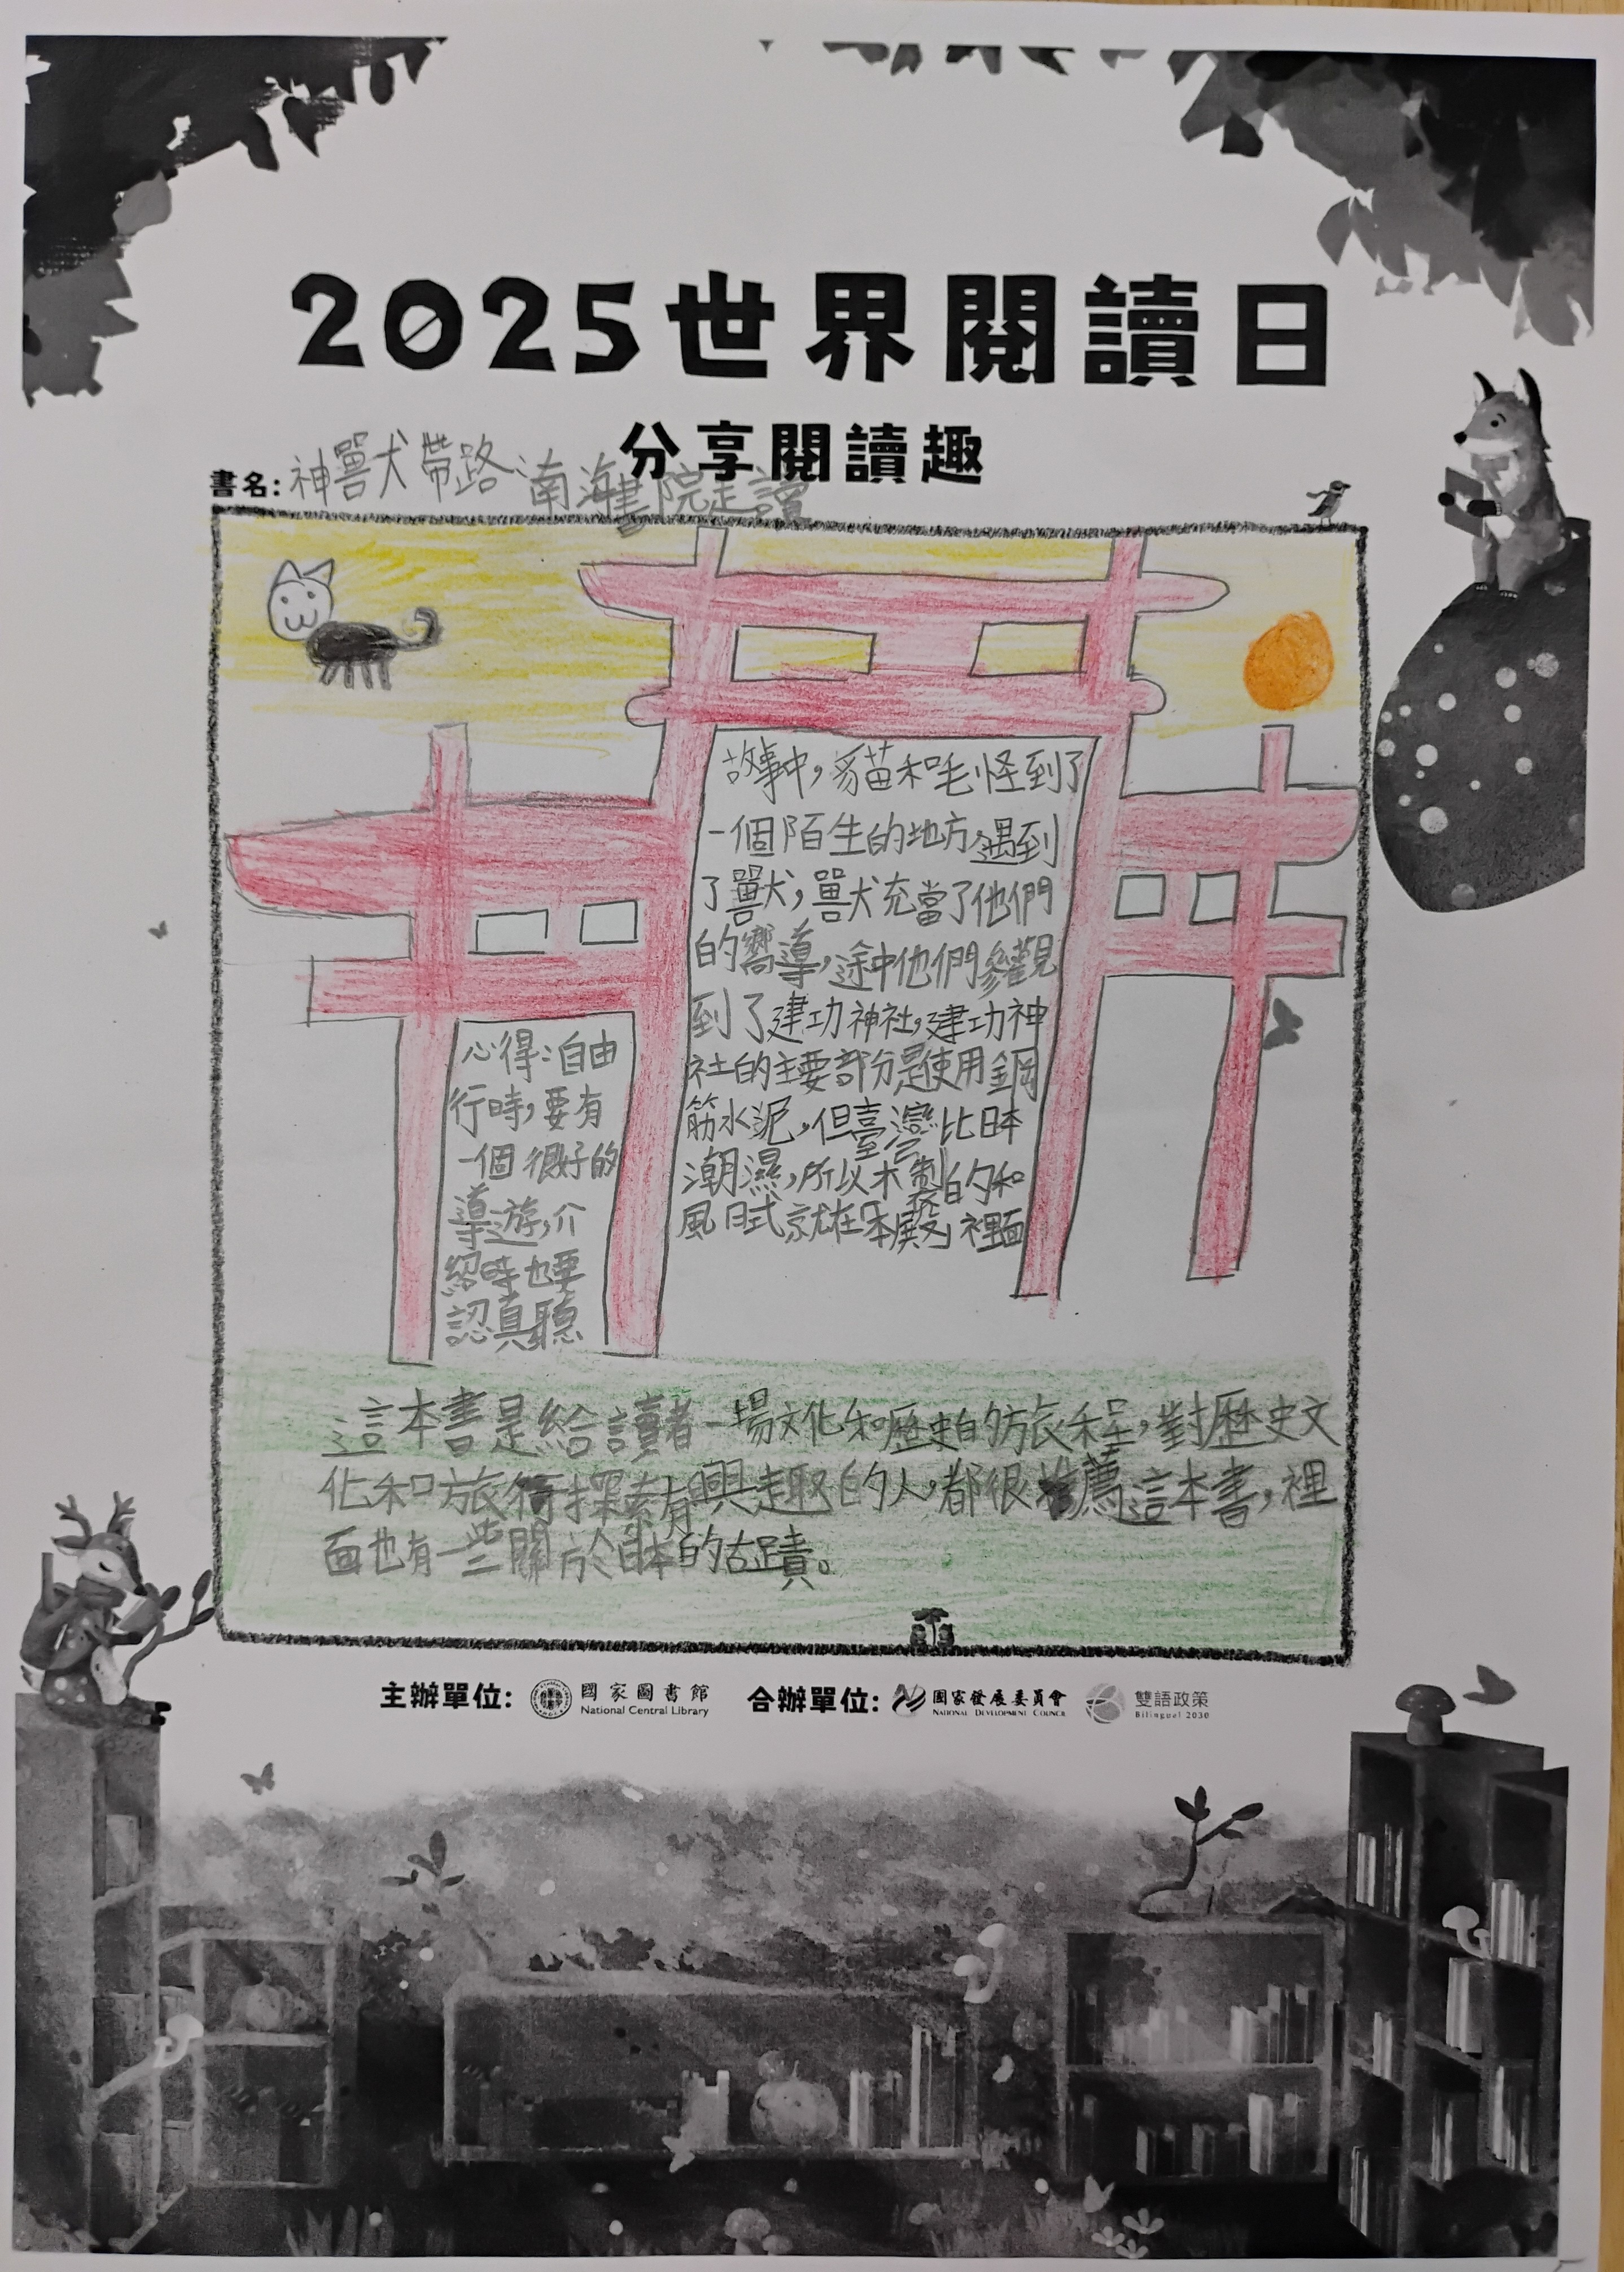 2025世界閱讀日
分享閱讀趣
書名:神獸犬帶路南海書院走讀
故事中,貓和毛怪到了
一個陌生的地方,遇到
了獸犬,獸犬充當了他們
的嚮導,途中他們參觀
到了建功神社,建功神
社的主要部分是使用鋼
筋水泥,但臺灣比日本
潮濕,所以木製的和
風日式就在本殿裡面
心得:自由
行時,要有
一個很好的
導遊,介
紹時也要
認真聽
這本書是給讀者一場文化和歷史的旅程,對歷史文
化和旅行探索有興趣的人,都很推薦這本書,裡
面也有一些關於日本的古蹟。
主辦單位: 國家圖書館 合辦單位: 國家發展委員會 雙語政策
National Central Library NATIONAL DEVELOPMENT COUNCIL Bilingual 2030